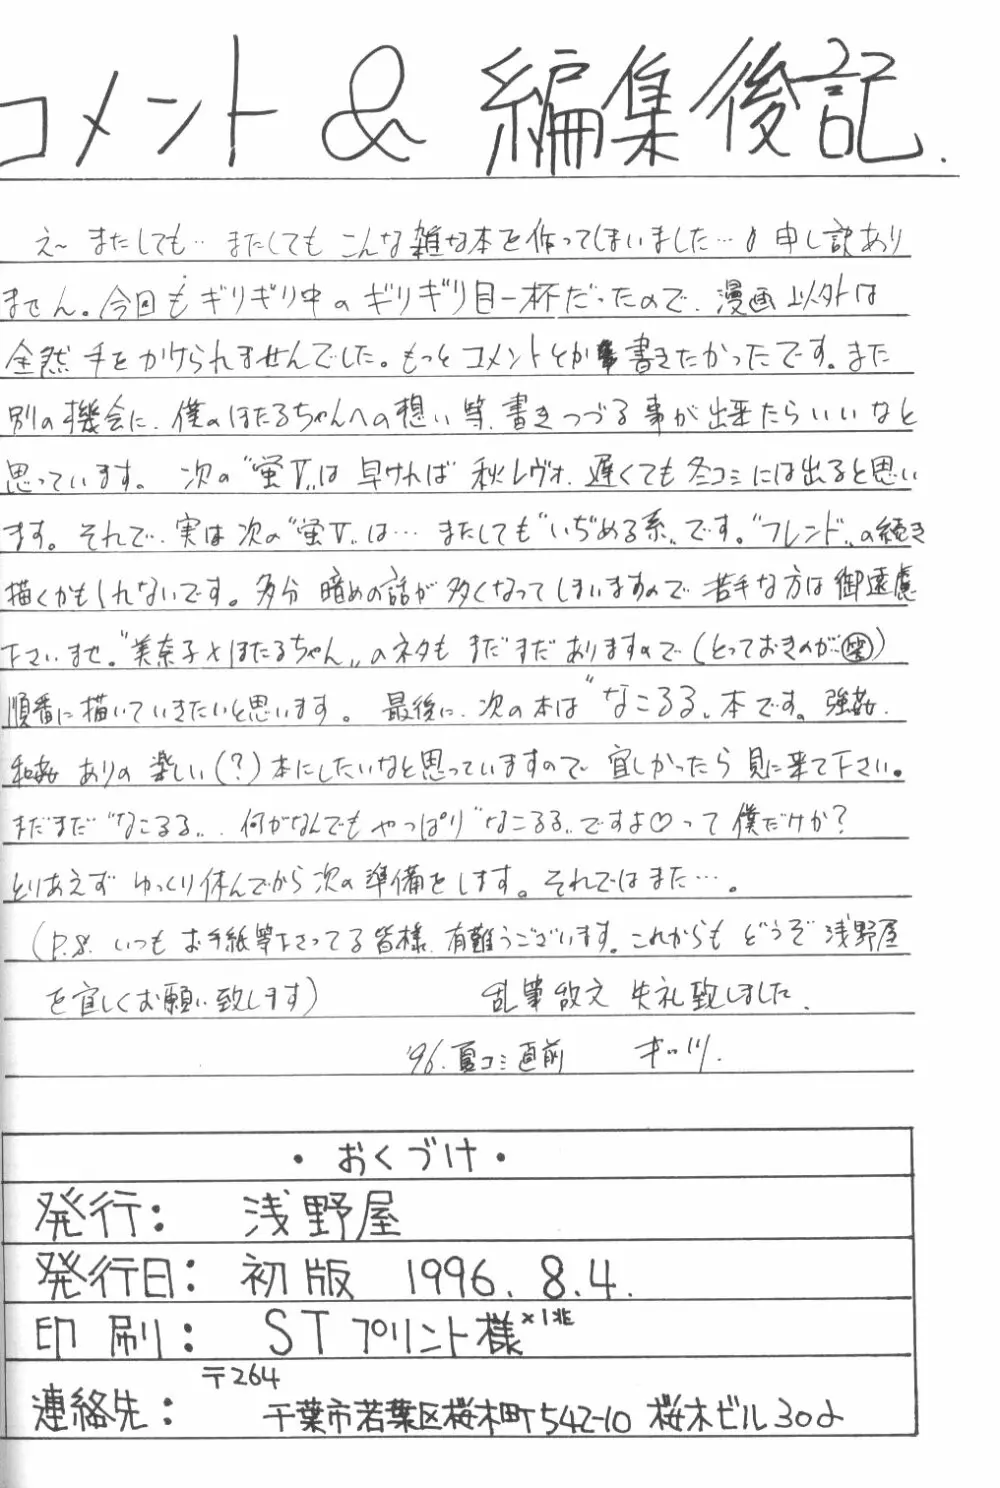 コメント & 編集後記.
え〜 またしても‥ またしても こんな 雑な本を 作ってしまいました…♪ 申し訳あり
ません。今回も ギリギリ中の ギリギリ目一杯だったので、漫画以外は
全然 手を かけられませんでした。もっと コメントとか 書きたかったです。また
別の機会に、僕のほたるちゃんへの想い等、書きつづる事が出来たらいいなと
思っています。 次の"蛍Ⅴ"は 早ければ 秋レヴォ、遅くても 冬コミには出ると思い
ます。それで、実は次の"蛍Ⅴ"は… またしても"いぢめる系"です。"フレンド"の続き
描くかもしれないです。多分 暗めの話が多くなってしまいますので 苦手な方は御遠慮
下さいませ。"美奈子とほたるちゃん"のネタも まだまだありますので(とっておきのが㊤笑)
順番に描いていきたいと思います。 最後に、次の本は"なこるる"本です。強姦、
和姦 ありの 楽しい(?)本にしたいなと思っていますので 宜しかったら見に来て下さい。
まだまだ"なこるる"、何がなんでもやっぱり"なこるる"ですよ♡って 僕だけか?
とりあえず ゆっくり休んでから次の準備をします。それではまた…。
(P.S. いつも お手紙等下さってる皆様、有難うございます。これからも どうぞ 浅野屋
を宜しくお願い致します) 乱筆散文 失礼致しました.
'96.夏コミ直前
・おくづけ・
発行: 浅野屋
発行日: 初版 1996. 8.4.
印刷: STプリント様×1兆
〒264
連絡先: 千葉市若葉区桜木町542-10 桜木ビル30